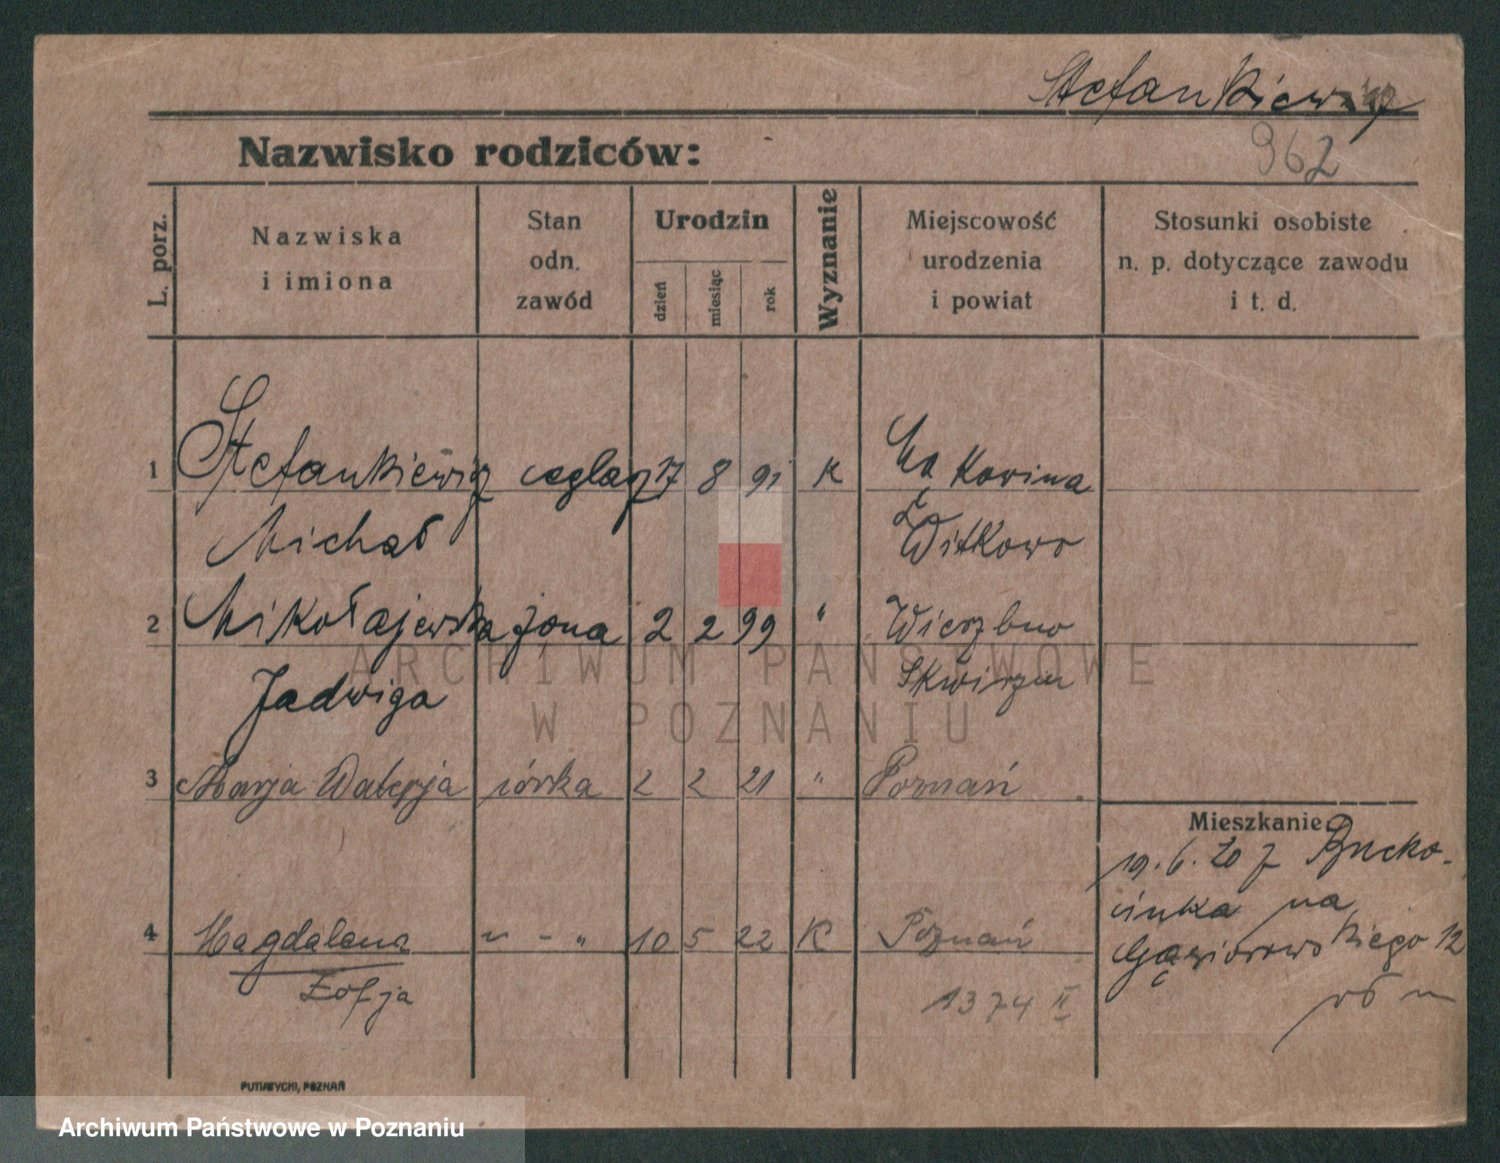 Stefankiewicz
962
Nazwisko rodziców:
L. porz.
Nazwiska
i imiona
Stan
odn.
zawód
Urodzin
dzień
miesiąc
rok
Wyznanie
Miejscowość
urodzenia
i powiat
Stosunki osobiste
n. p. dotyczące zawodu
i t. d.
1 Stefankiewicz ceglarz 17 8 91 K
Michał Witkowo
2 Mikołajewska żona 2 2 99 " Wierzbno
Jadwiga Skwierzyn
3 Marja Walerja córka 2 2 21 " Poznań
Mieszkanie
19. 6. 20 z Bucko-
4 Magdalena " - " 10 5 22 K Poznań
na
Gąsiorowskiego 12
Zofja
1374 II
PUTIATYCKI, POZNAŃ
ARCHIWUM PAŃSTWOWE
W POZNANIU
Archiwum Państwowe w Poznaniu